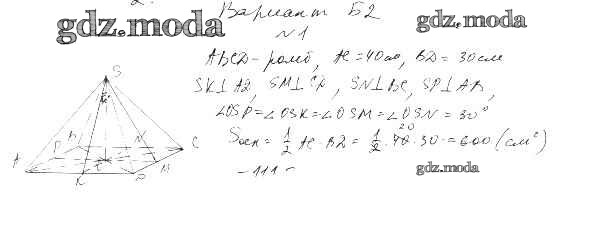 Вариант Б2
gdz.moda
gdz.moda
№1
ABCD - ромб, AC = 40 см, BD = 30 см
SK⊥AD, SM⊥CD, SN⊥BC, SP⊥AB,
∠OSP = ∠OSK = ∠OSM = ∠OSN = 30°
Sосн = 1/2 AC·BD = 1/2·40·30 = 600 (см²)
20
gdz.moda
S
B
N
C
P
A
M
K
D